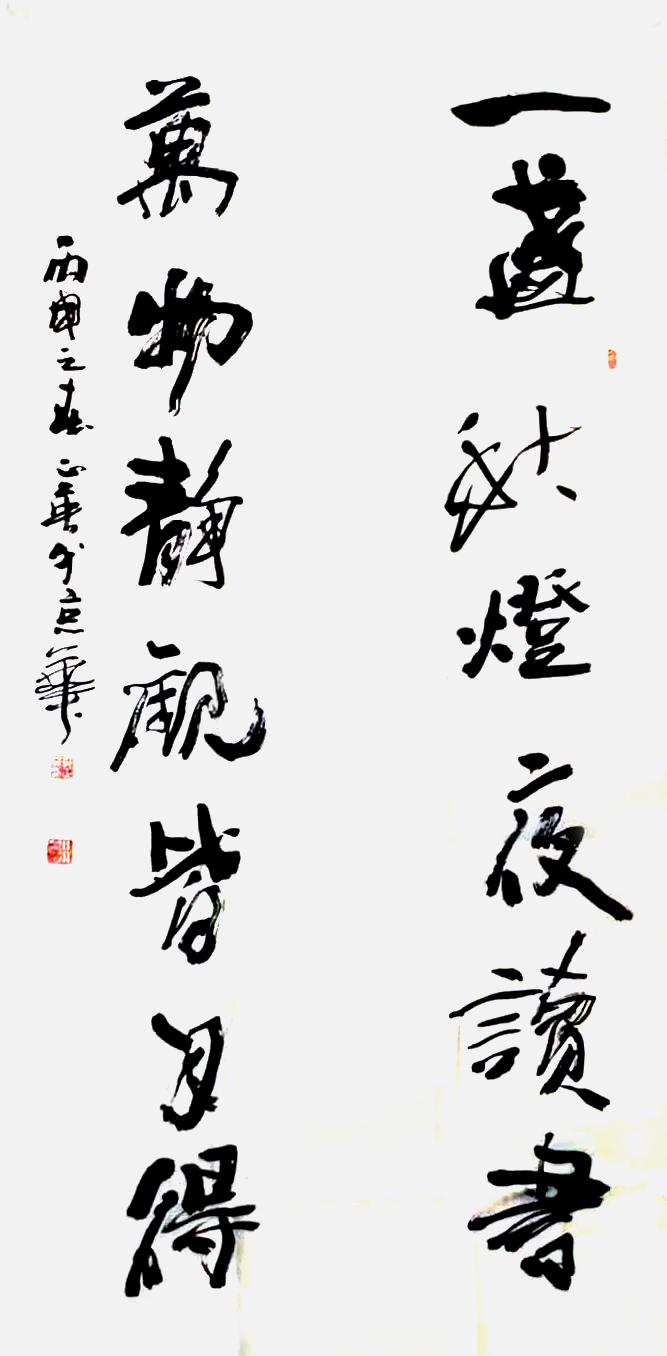 一盞秋燈夜讀書
萬物靜觀皆自得
丙申之春於京華